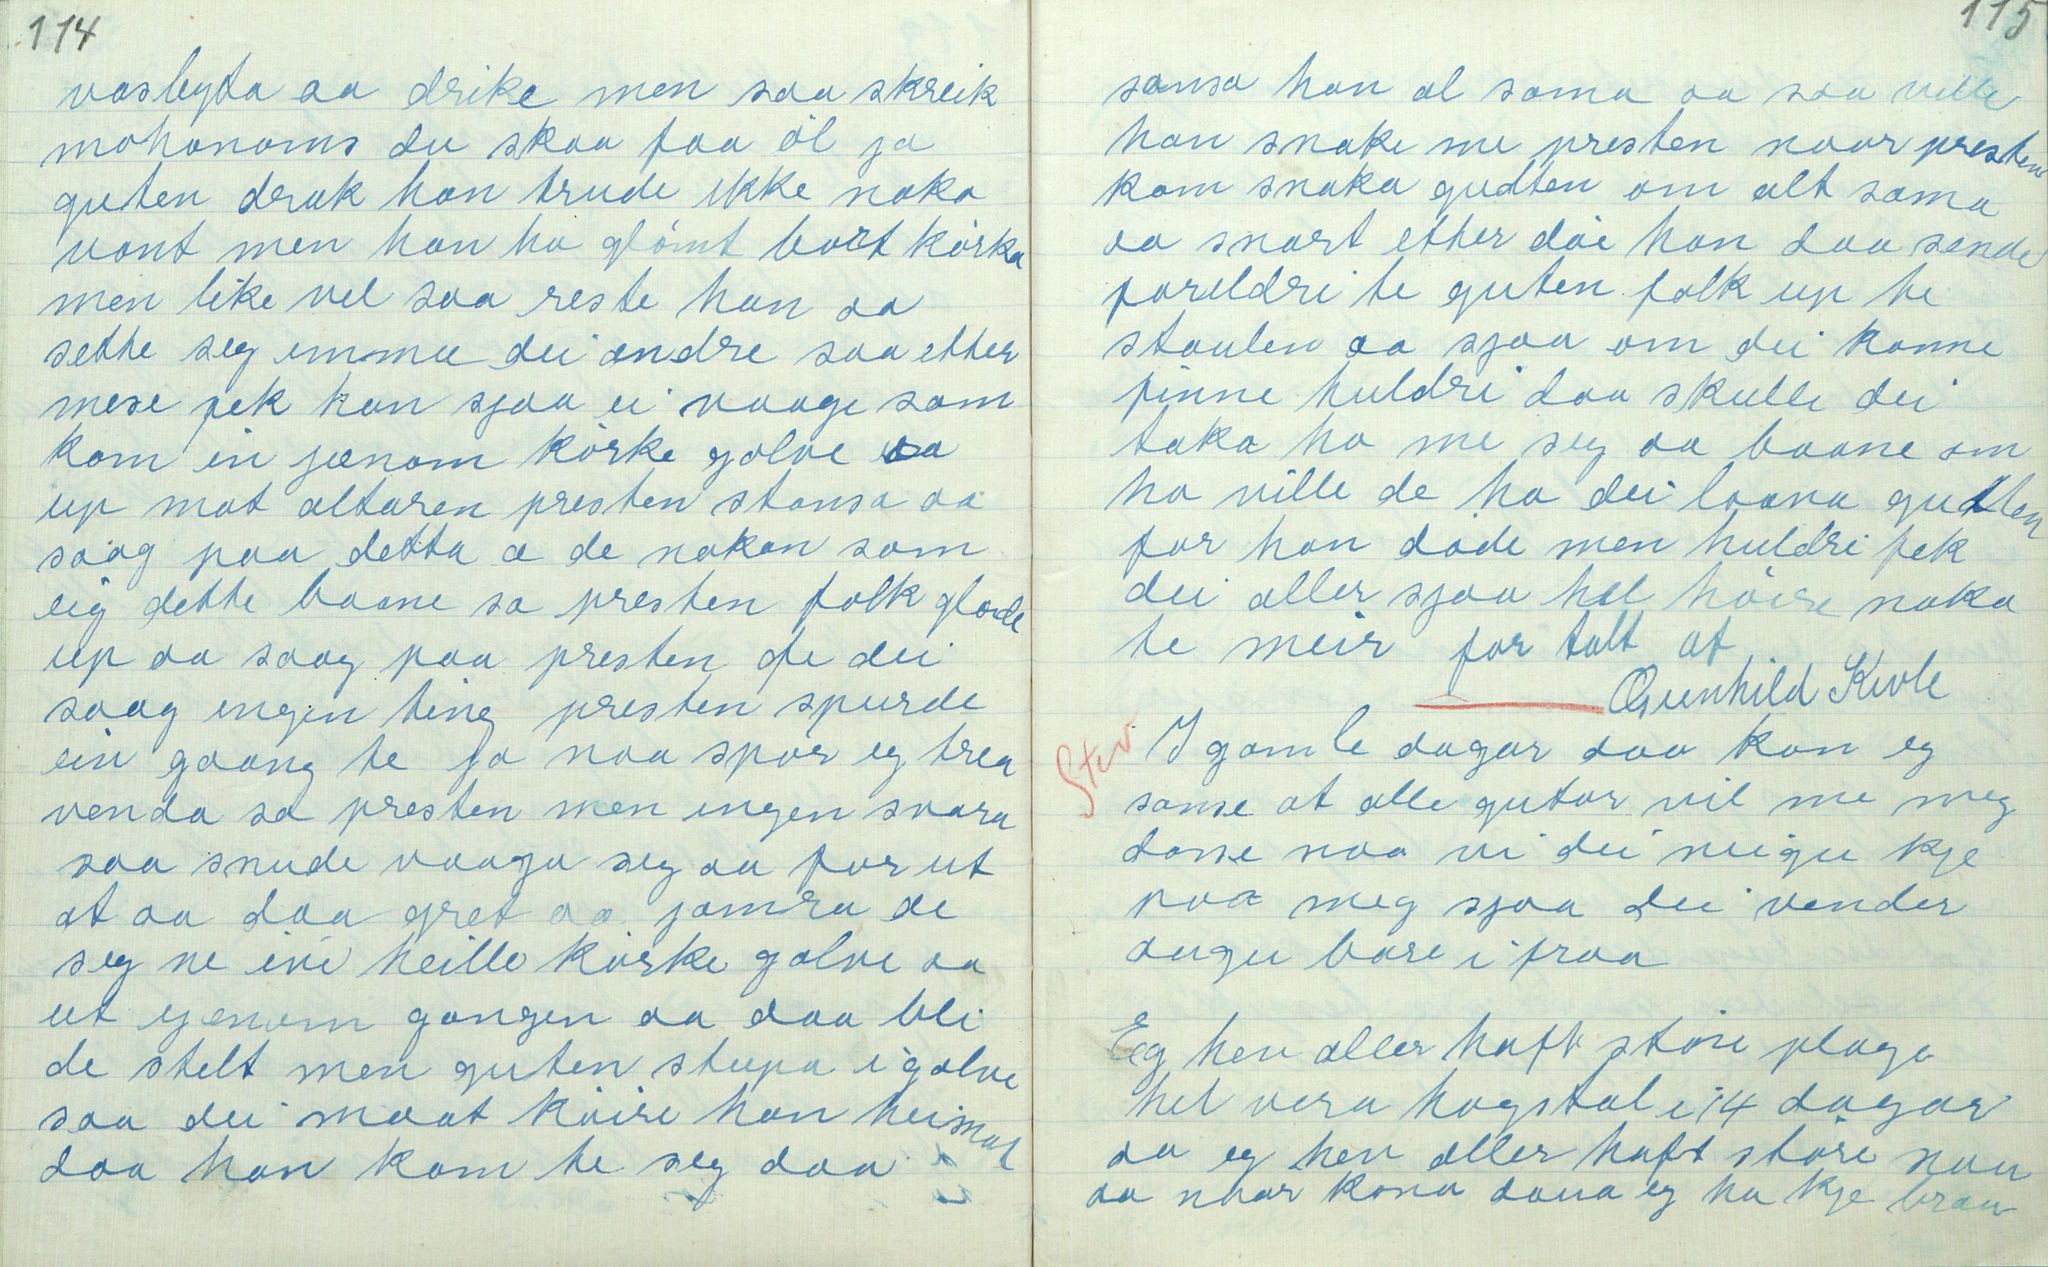 114
vasbytta aa drike men saa skreik
mohonoms du skaa faa öl ja
guten drak han trude ikke noka
vont men han ha glömt bort körka
men like vel saa reste han aa
sette seg imma dei andre saa etter
mese fek han sjaa ei vaage som
kom in jænom körke golve aa
up mot altaren presten stansa aa
saag paa detta a de nokon som
eig dette baane sa presten folk glode
up aa saag paa presten fe dei
saag ingen ting presten spurde
ein gaang te ja naa spör eg trea
venda sa presten men ingen svara
saa snude vaaga seg aa for ut
at aa daa gret aa jamra de
seg ne ivi heille körke golve aa
ut gjenom gangen aa daa blei
de stelt men guten stupa i golve
saa dei maat köire han heimat
daa han kom te seg daa
115
sansa han al sama aa saa ville
han snake me presten naar presten
kom snaka gudten om alt sama
aa snart etter döe han daa sende
foreldri te guten folk up te
staulen aa sjaa om dei konne
finne huldri daa skulle dei
taka ho me seg aa baane om
ho ville de ha dei lova gudten
för han döde men huldri fek
dei aller sjaa hel höire noka
te meir for talt at
Gunhild Kivle
Stev
I gamle dagar daa kan eg
sanse at alle gutar vil me meg
danse naa vi dei neigu kje
paa meg sjaa dei vender
augu bare i fraa
Eg hev aller haft störe plage
hel vera hogstal i 14 dagar
aa eg hev aller haft störe nau
aa naar kona daua eg ha kje brau